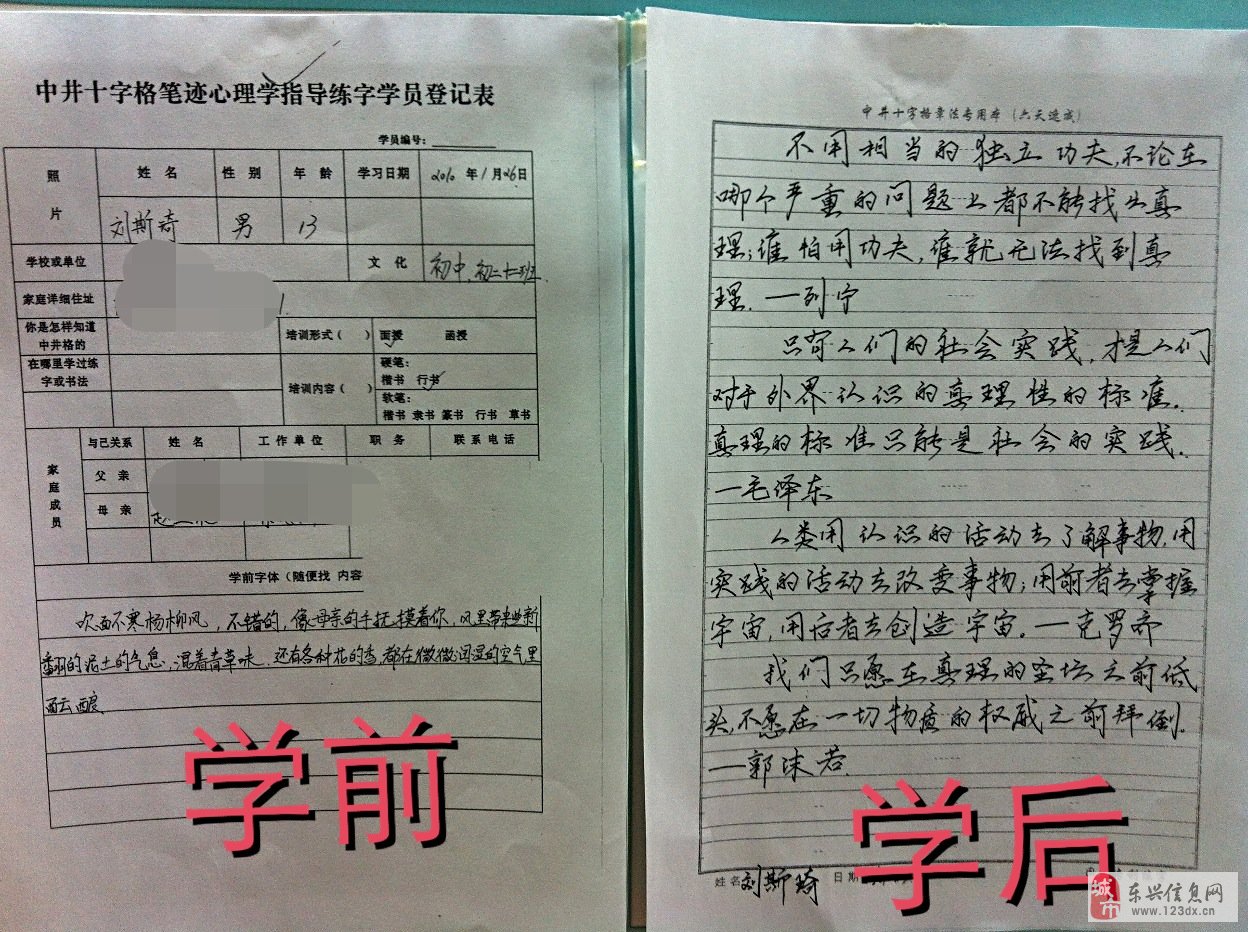 中井十字格笔迹心理学指导练字学员登记表
学员编号：
照片 姓名 性别 年龄 学习日期 2010 年 1 月 26 日
刘斯琦 男 13
学校或单位 文化 初中，初二十二班
家庭详细住址
你是怎样知道中井格的 培训形式（ ） 面授 函授
在哪里学过练字或书法 培训内容（ ） 硬笔：
楷书 行书
软笔：
楷书 隶书 篆书 行书 草书
家庭成员 与己关系 姓名 工作单位 职务 联系电话
父亲
母亲
学前字体（随便找 内容
吹面不寒杨柳风，不错的，像母亲的手抚摸着你，风里带来些新
翻的泥土的气息，混着青草味，还有各种花的香，都在微微润湿的空气里
酝酿
学前
中井十字格章法专用本（六天速成）
不用相当的独立功夫，不论在
哪个严重的问题上都不能找出真
理；谁怕用功夫，谁就无法找到真
理．一列宁
只有人们的社会实践，才是人们
对于外界认识的真理性的标准．
真理的标准只能是社会的实践．
一毛泽东
人类用认识的活动去了解事物，用
实践的活动去改变事物；用前者去掌握
宇宙，用后者去创造宇宙。一克罗齐
我们只愿在真理的圣坛之前低
头，不愿在一切物质的权威之前拜倒．
一郭沫若．
学后
姓名 刘斯琦 日期
城市
东兴信息网
www.123dx.cn